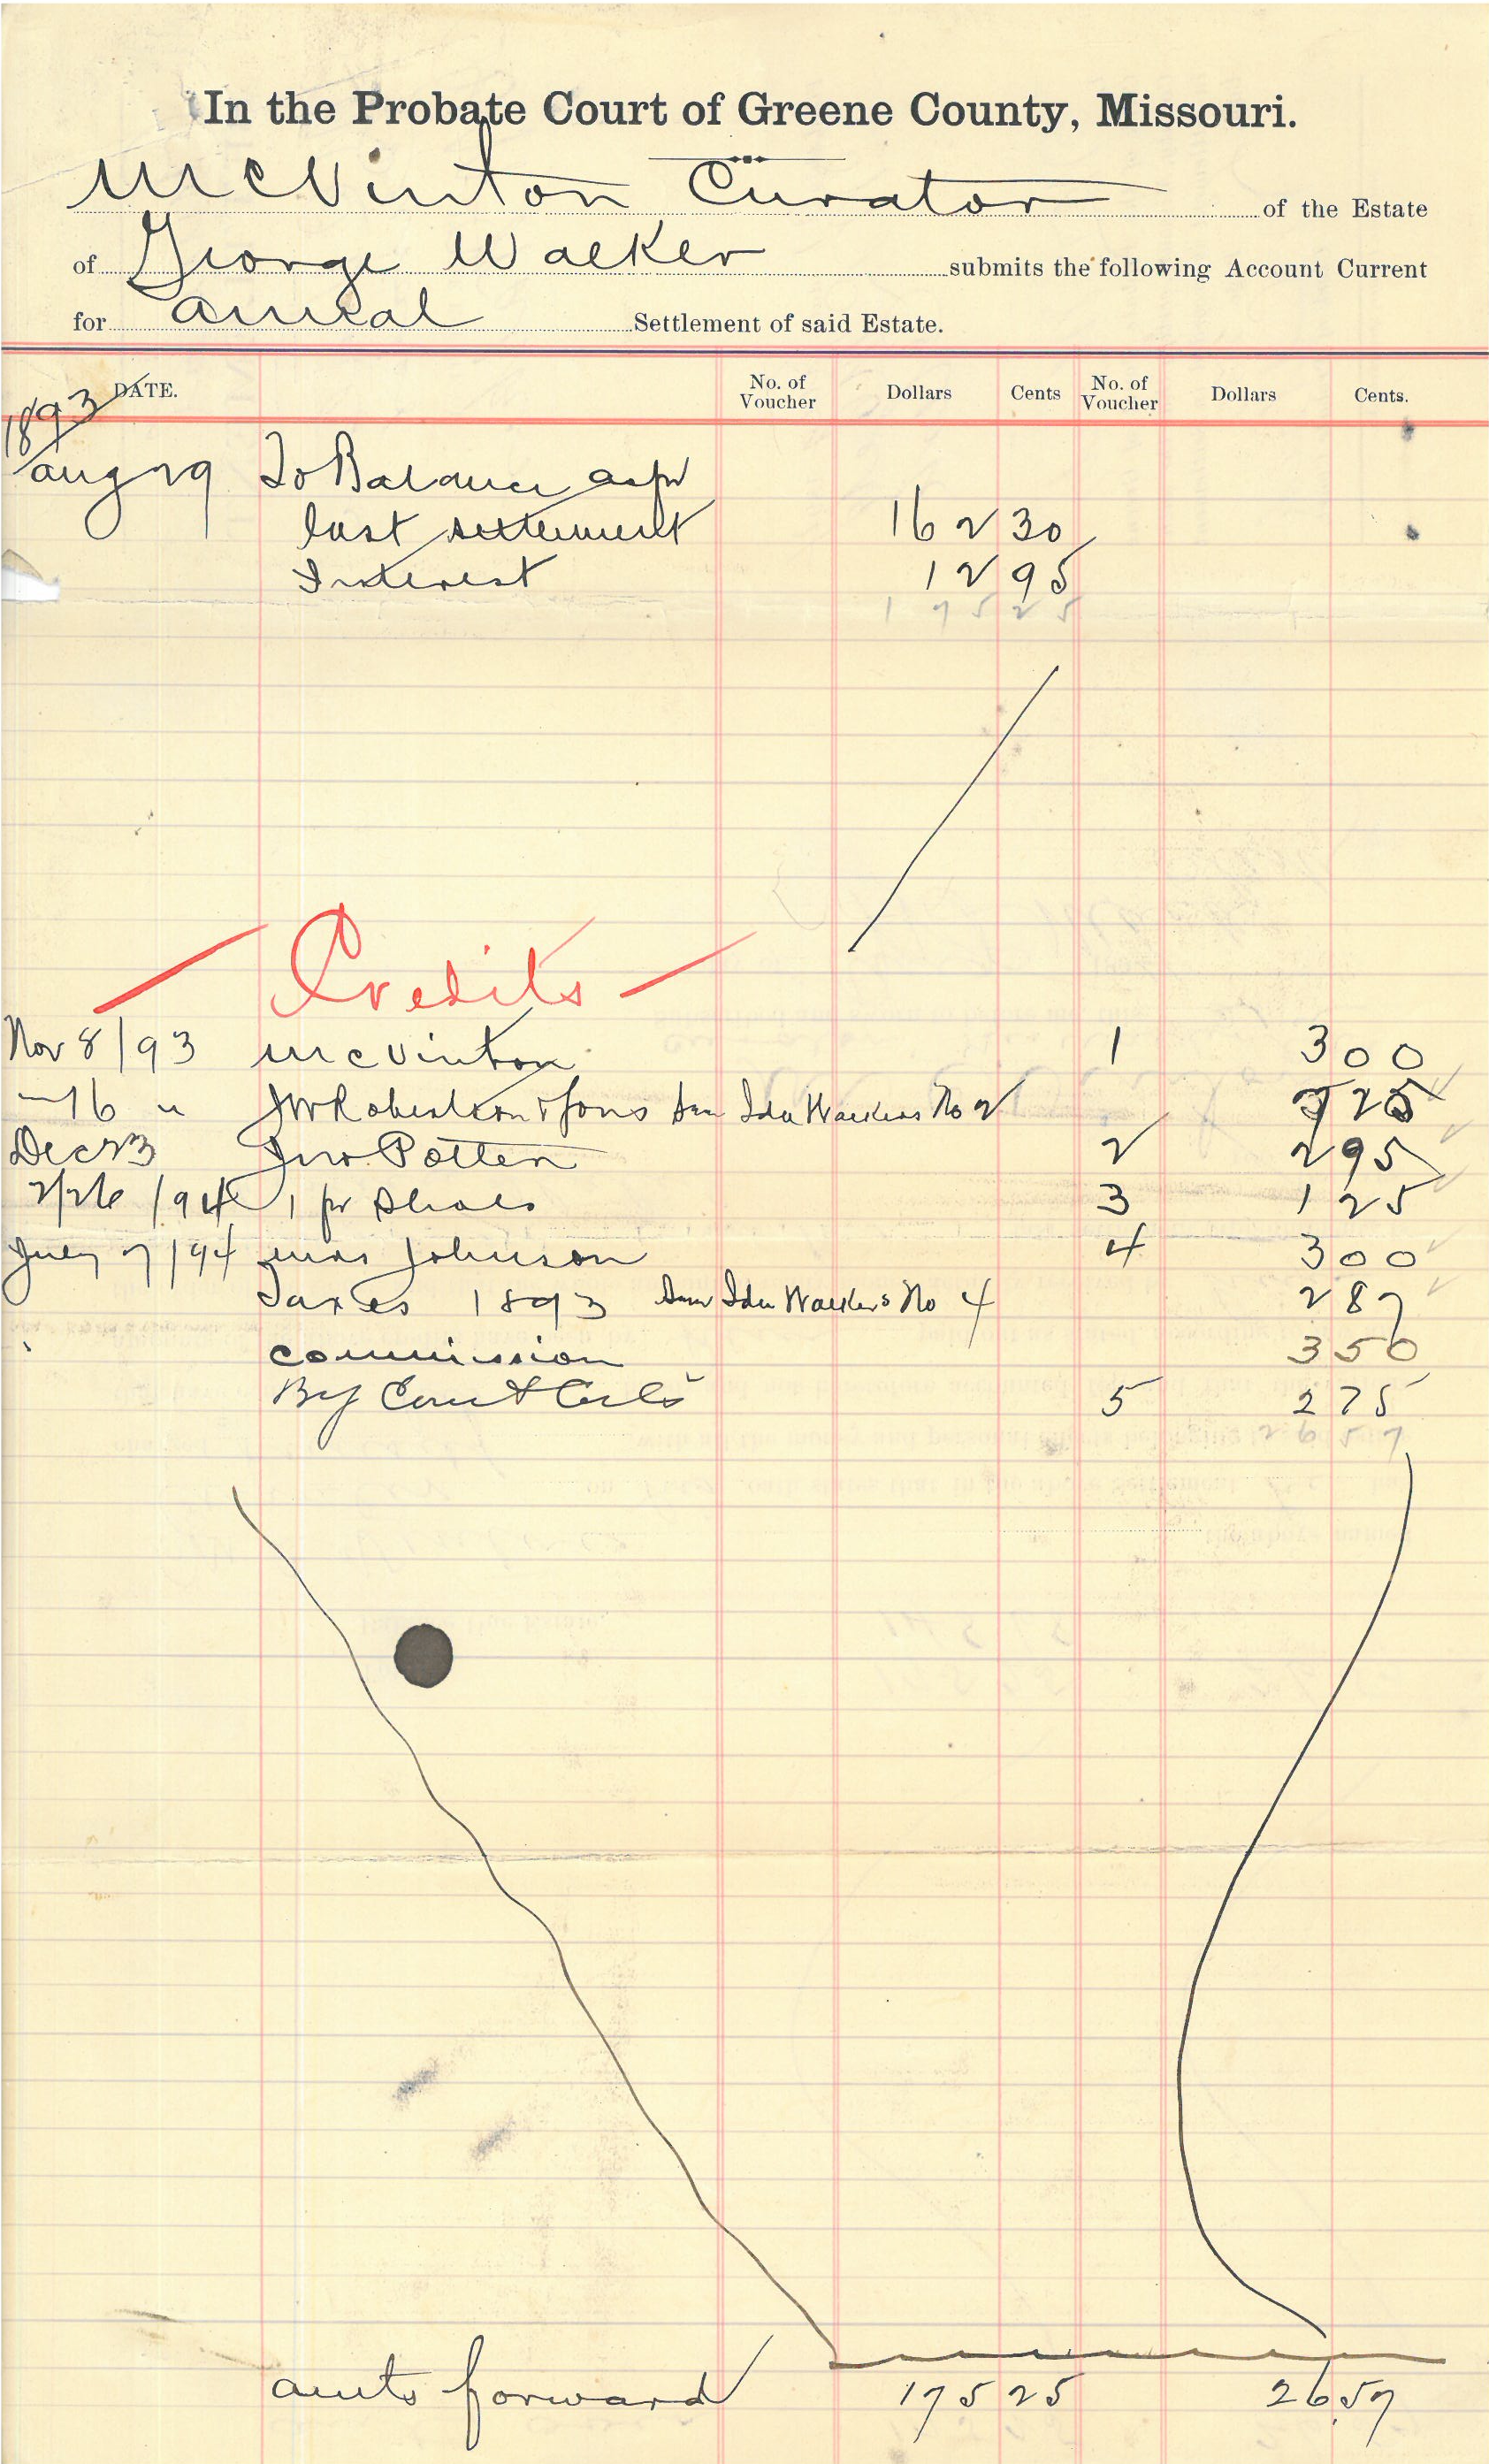 In the Probate Court of Greene County, Missouri.
McVinton Curator of the Estate
of George Walker submits the following Account Current
for Annual Settlement of said Estate.
DATE. No. of Voucher Dollars Cents No. of Voucher Dollars Cents.
1893
Aug 29 To Balance as pr
last settlement 162 30
Interest 12 95
175 25
Credits
Nov 8/93 McVinton 1 3 00
" 16 " JW Robertson & Sons Ida Walkers No 2 7 25
Dec 23 Jno Potten 2 2 95
2/26/94 1 pr Shoes 3 1 25
July 7/94 Mrs Johnson 4 3 00
Taxes 1893 Ida Walkers No 4 2 87
Commission 3 50
By Court Costs 5 2 75
26 57
amts forward 175 25 26 57